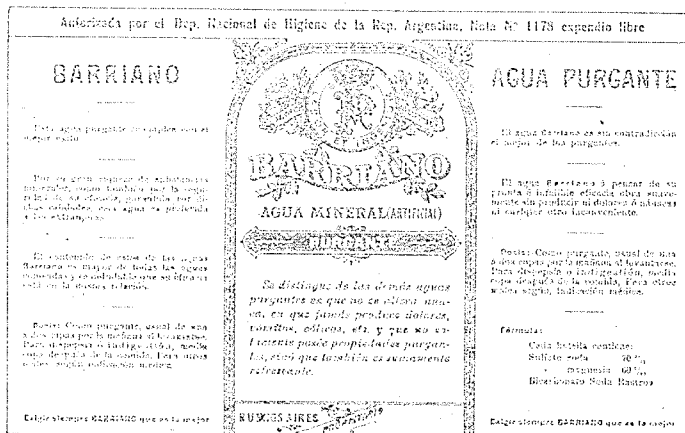 Autorizada por el Dep. Nacional de Higiene de la Rep. Argentina, Nota Nº 1178 expendio libre
BARRIANO
Esta agua purgante se emplea con el
mejor éxito.
Por su gran riqueza de substancias
minerales, como también por la segu-
ridad de su eficacia, garantida por di-
chas calidades, esta agua es preferida
a las extranjeras.
El contenido de sales de las aguas
Barriano es mayor de todas las aguas
conocidas y es indudable que su eficacia
está en la misma relación.
Dosis: Como purgante, usual de una
a dos copas por la mañana al levantarse.
Para dispepsia o indigestión, media
copa después de la comida. Para otros
males según indicación médica.
Exigir siempre BARRIANO que es la mejor
BARRIANO
AGUA MINERAL (ARTIFICIAL)
PURGANTE
Se distingue de las demás aguas
purgantes en que no se altera nun-
ca, en que jamás produce dolores,
vómitos, cólicos, etc. y que no so-
lamente posée propiedades purgan-
tes, sinó que también es sumamente
refrescante.
BUENOS AIRES
AGUA PURGANTE
El agua Barriano es sin contradicción
el mejor de los purgantes.
El agua Barriano á pesar de su
pronta é infalible eficacia obra suave-
mente sin producir ni dolores ó náuseas
ni cualquier otro inconveniente.
Dosis: Como purgante, usual de una
a dos copas por la mañana al levantarse.
Para dispepsia o indigestión, media
copa después de la comida. Para otros
males según indicación médica.
Fórmula:
Cada botella contiene:
Sulfato soda
" magnesia
Bicarbonato Soda Rastros
Exigir siempre BARRIANO que es la mejor